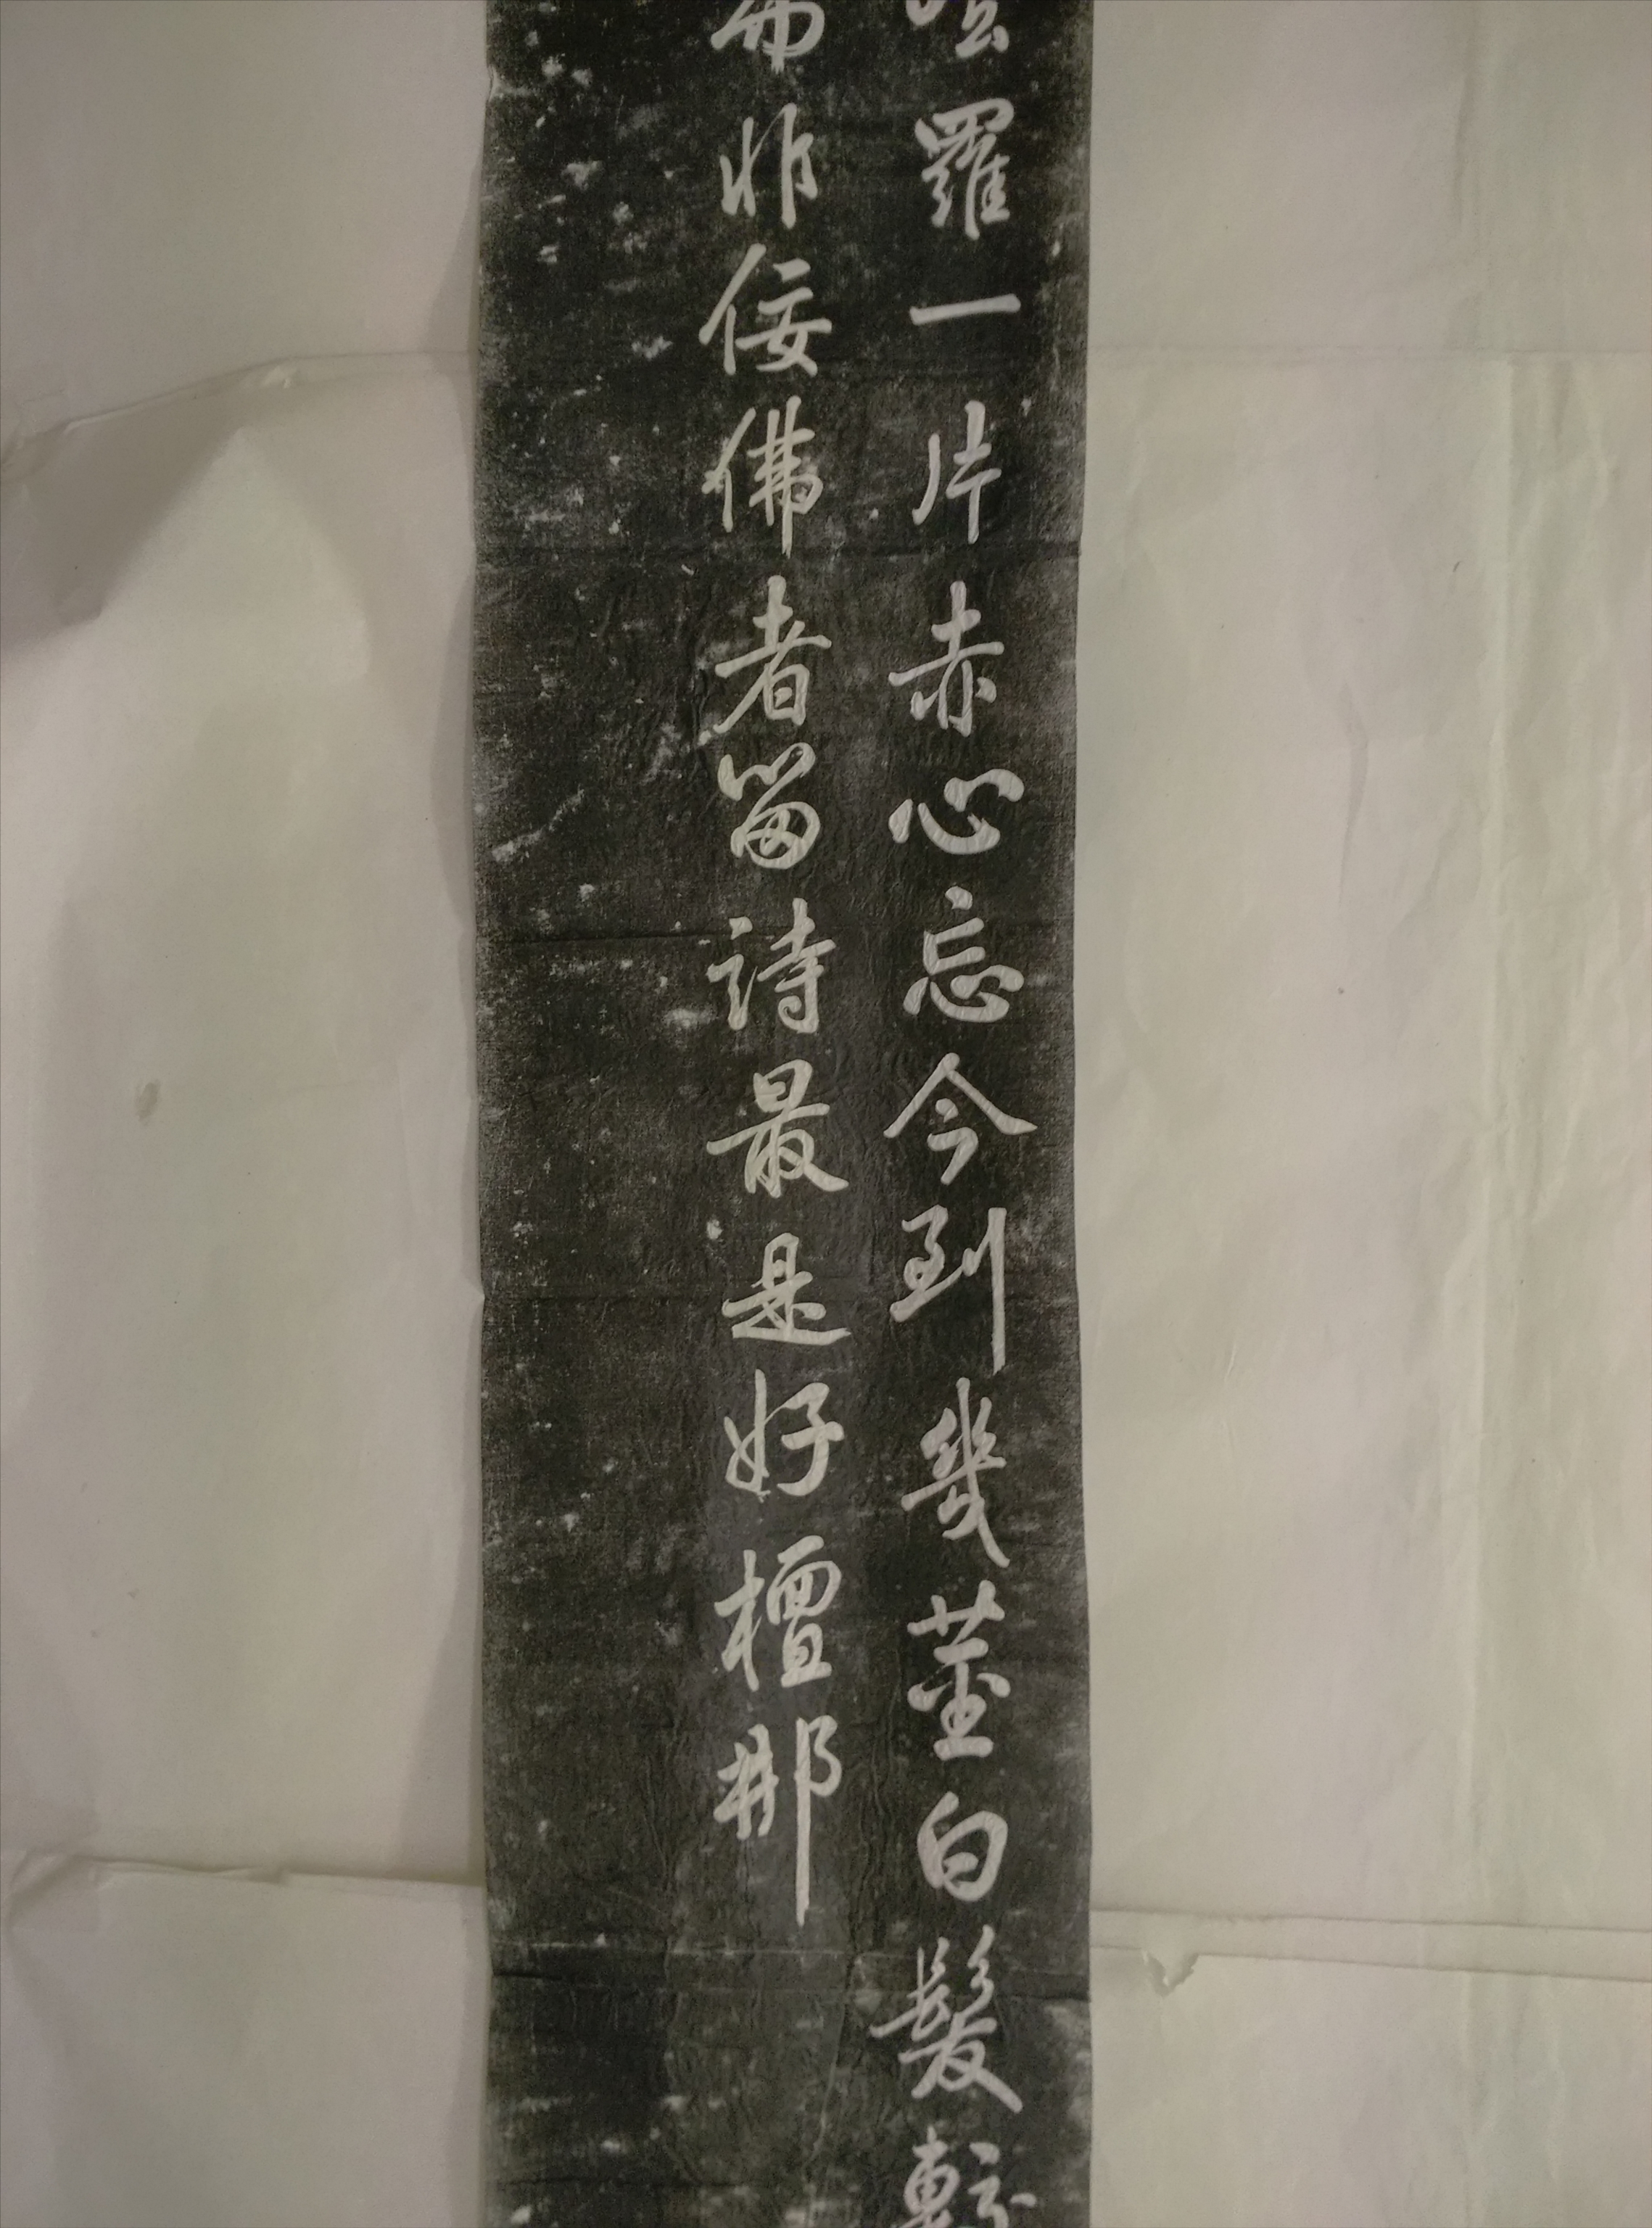 羅一片赤心忘今到幾莖白髮轉
非佞佛者留詩最是好檀那